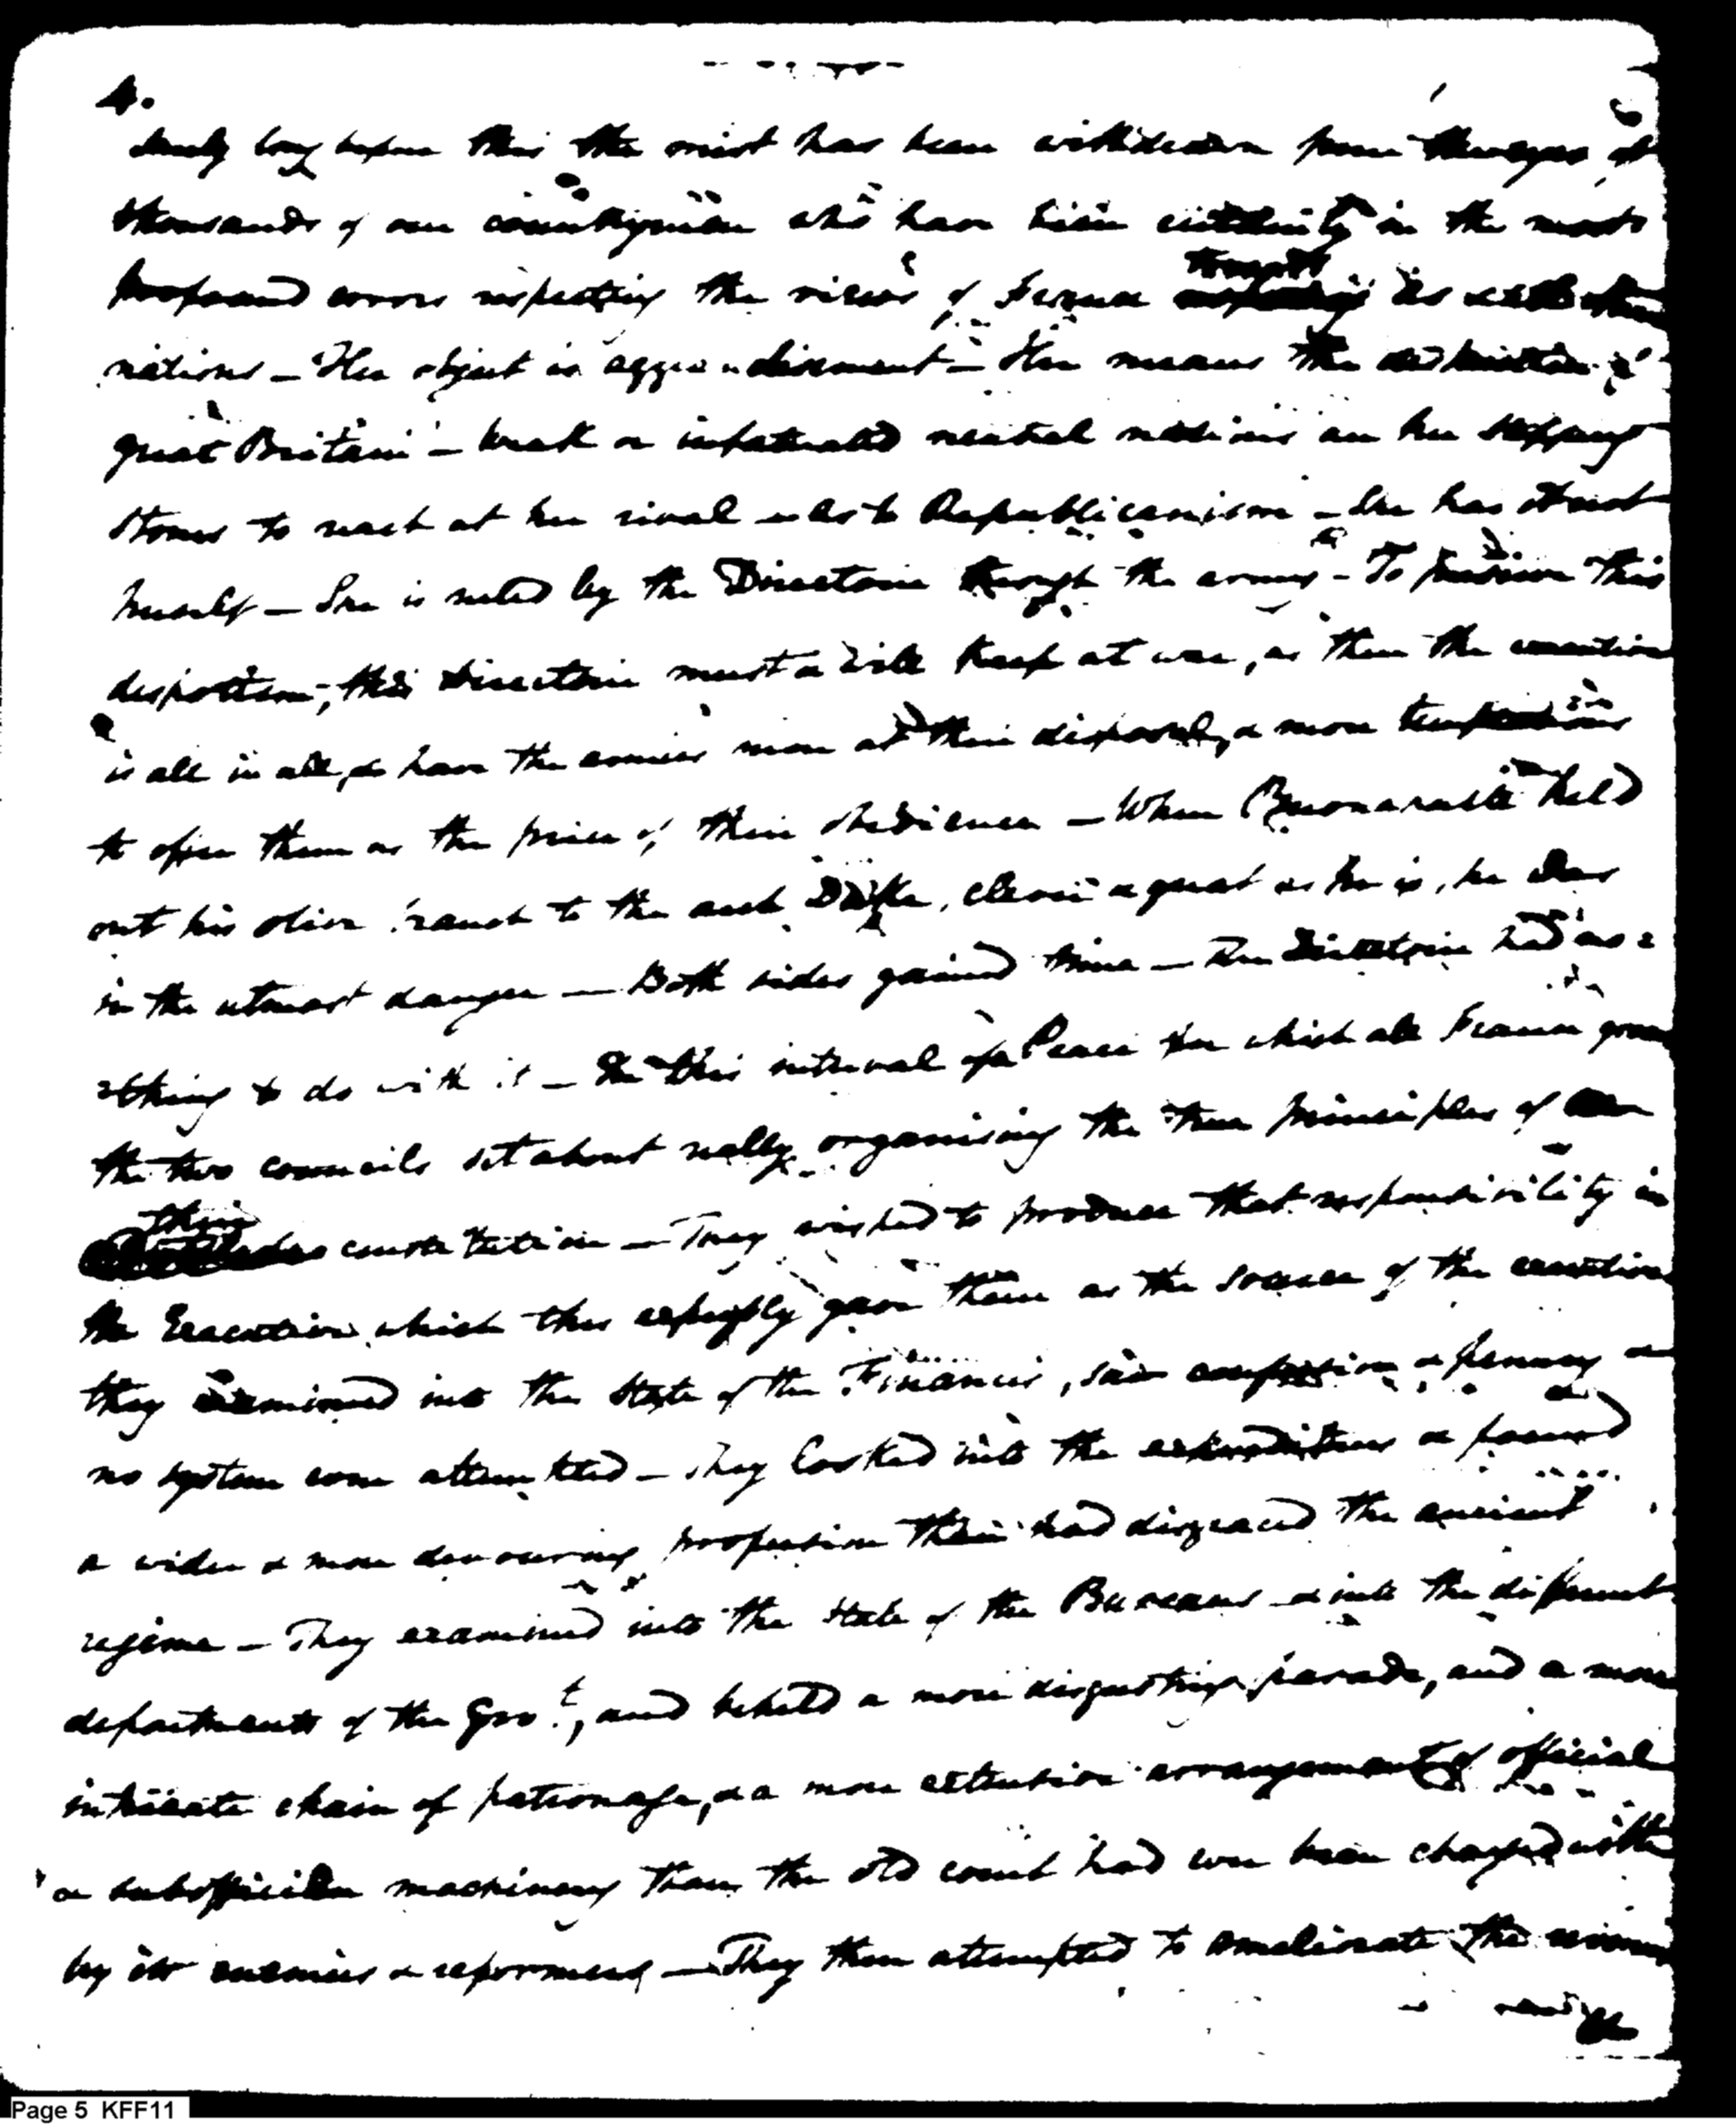 4.
long before this the mist has been withdrawn from the eyes of
thousands of our countrymen who have been in the most
profound errors respecting the views of France towards us & all other
nations – Her object is aggrandisement – Her means the destruction of
great Britain – weak or infatuated neutral nations are her stepping
stones to reach at her rival – as to Republicanism – she has none
herself – She is ruled by the Directoire through the army – To preserve this
despotism, this directoire must & will keep at war, as then the executive
is all in all, & have the armies more at their disposal, & more temptations
to offer them as the price of their obedience – When Buonaparte held
out his olive branch to the arch Duke, clever & great as he is, he was
in the utmost danger – Both sides gained time – The Directoire had no=
=thing to do with it – In this interval of Peace for which all France
the two councils set about really organising the true principles of
their constitution – They wished to produce that responsibility in
the Executive which this expressly gave them as the source of the executive
they examined into the state of the Finances, saw confusion & penury &
no system ever attempted – They looked into the expenditures & found
a wider & more devouring profusion than had disgraced the ancient
regime – They examined into the state of the Bureaus & into the different
departments of the Govt, and beheld a more disgusting parade, and a more
intricate chain of patronage, & a more extensive arrangement of official
& subofficial machinery than the old court had ever been charged with
by its enemies & reformers – They then attempted to ameliorate the
Page 5 KFF11